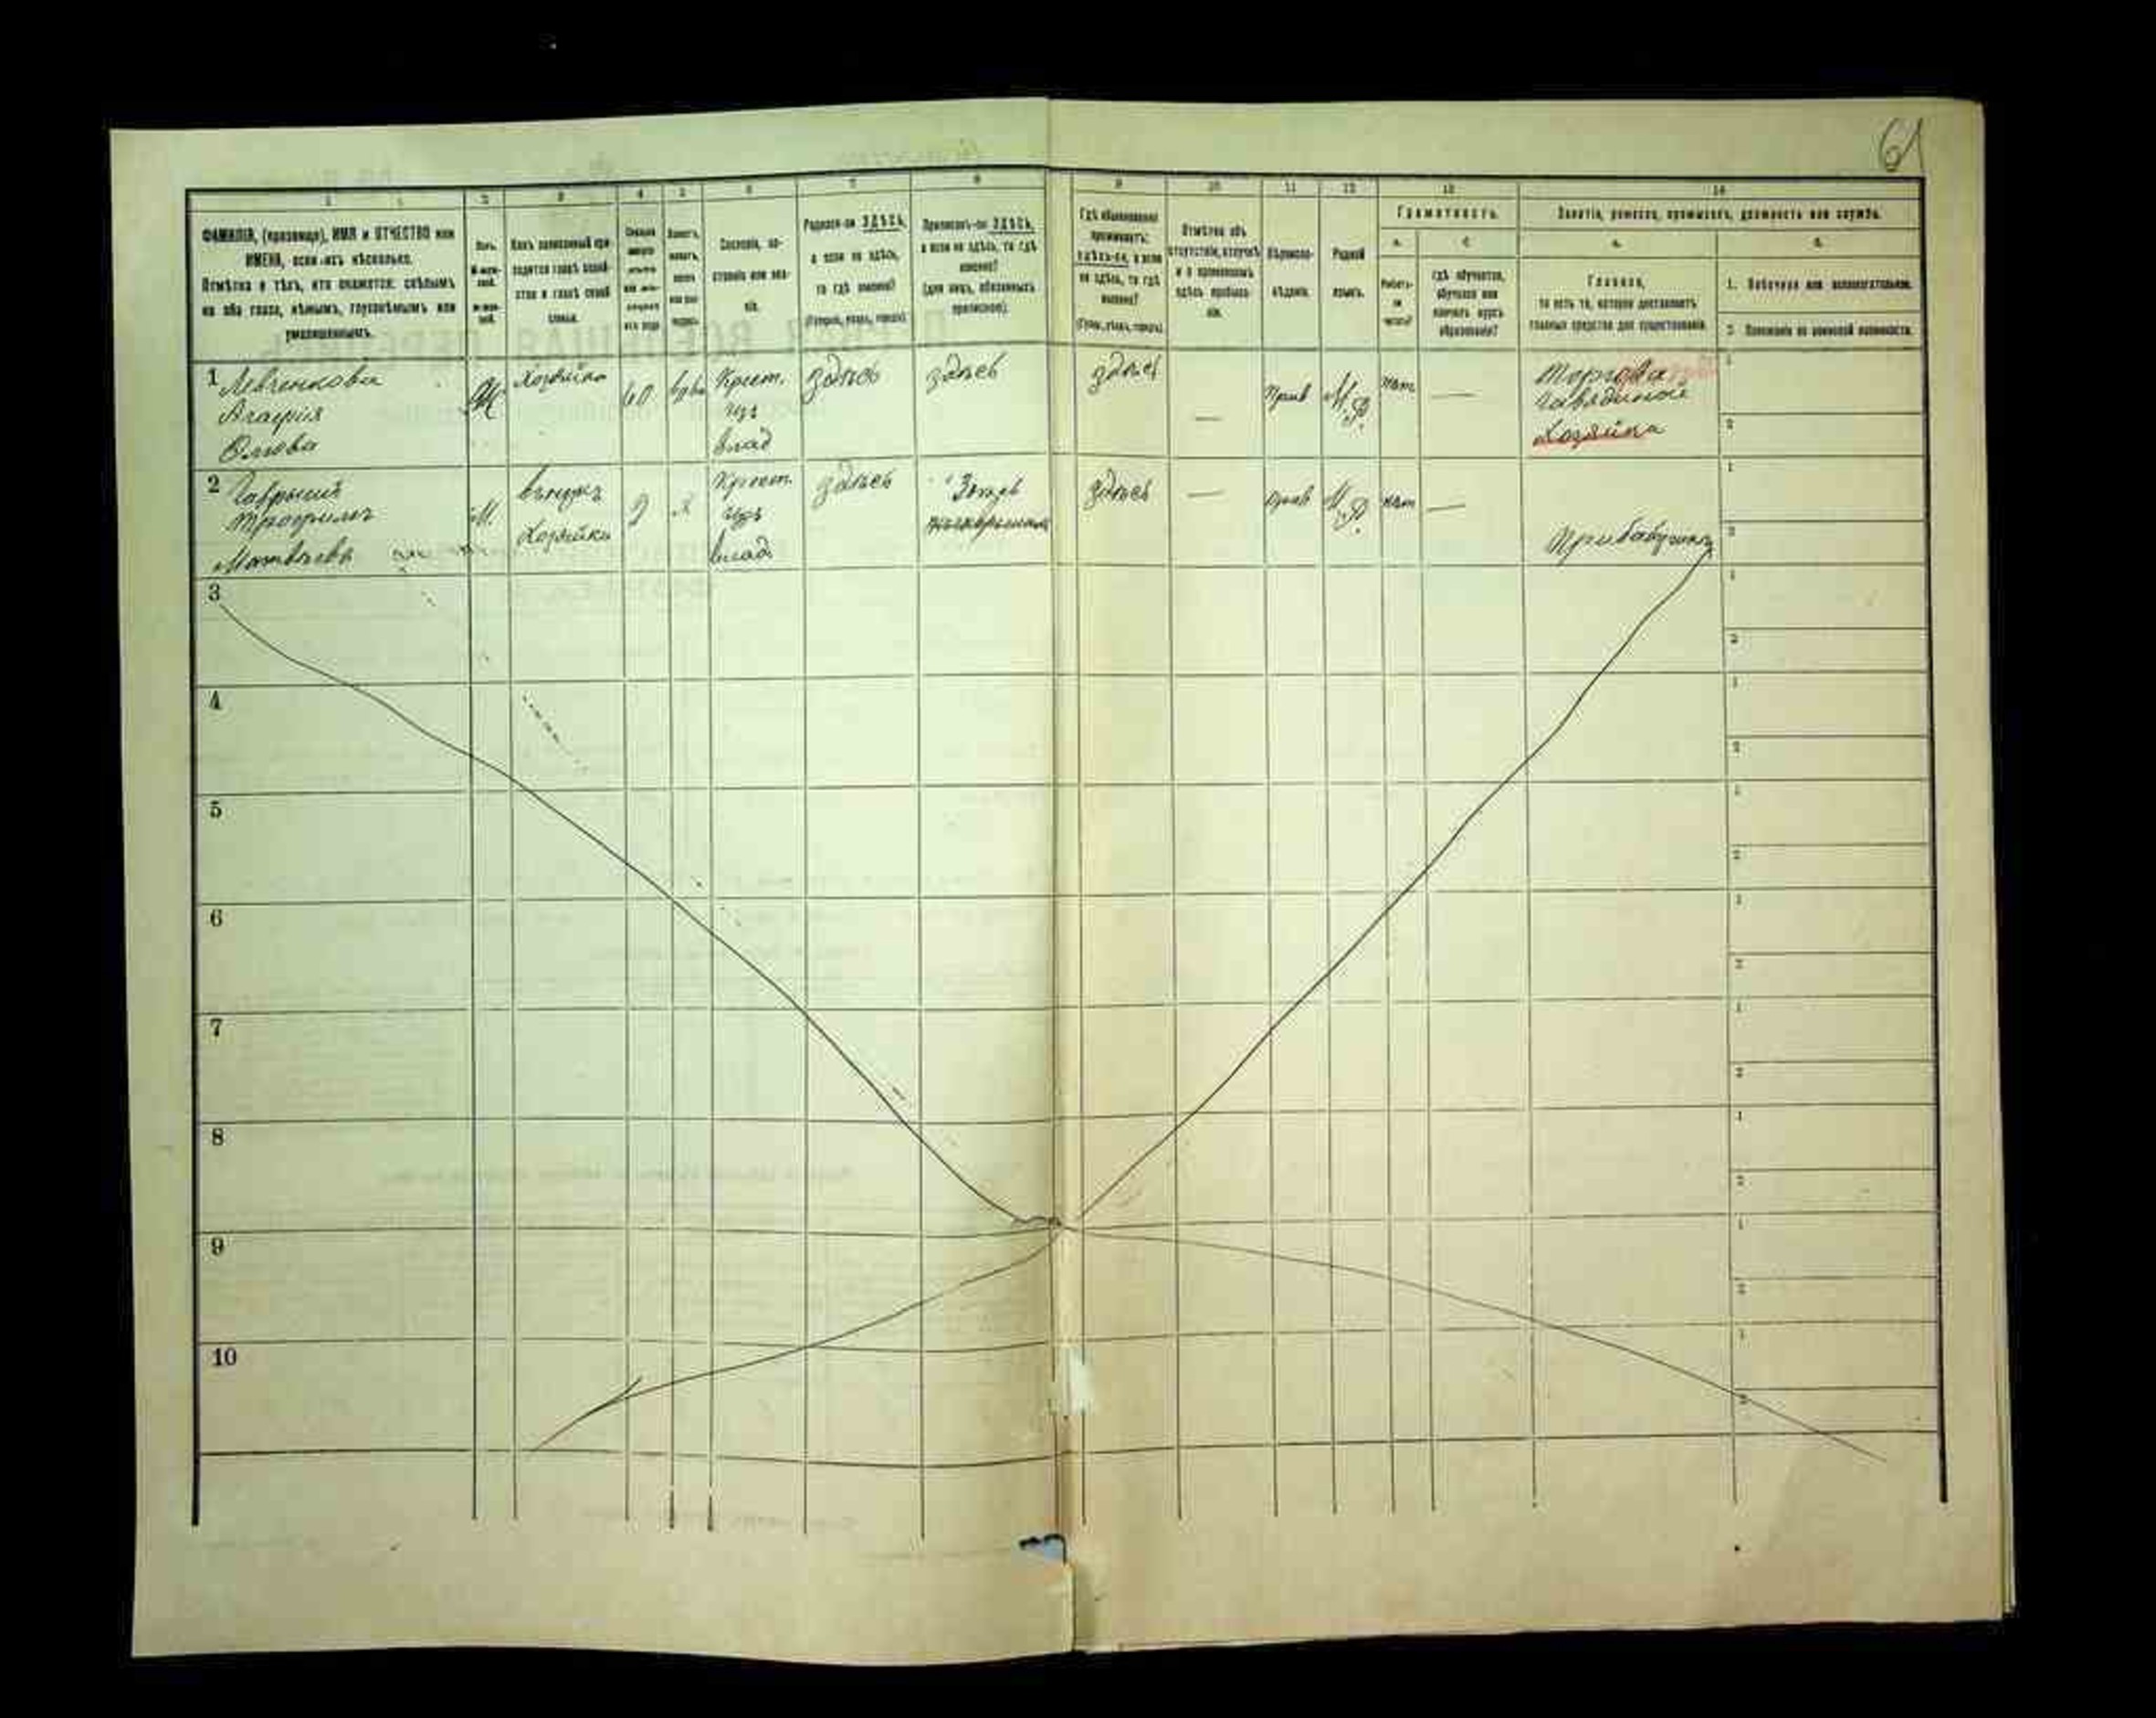 61
1 2 3 4 5 6 7 8 9 10 11 12 13 14
ФАМИЛІЯ, (прозвище), ИМЯ и ОТЧЕСТВО или
ИМЕНА, если ихъ нѣсколько.
Отмѣтка о тѣхъ, кто окажется: слѣпымъ
на оба глаза, нѣмымъ, глухонѣмымъ или
умалишеннымъ.
Полъ.
Какъ записанный при-
ходится главѣ хозяй-
ства и главѣ своей
семьи.
Сословіе, со-
стояніе или зва-
ніе.
Родился-ли ЗДѢСЬ,
а если не здѣсь,
то гдѣ именно?
(Губернія, уѣздъ, городъ)
Приписанъ-ли ЗДѢСЬ,
а если не здѣсь, то гдѣ
именно?
(для лицъ, обязанныхъ
припискою)
Гдѣ обыкновенно
проживаетъ:
здѣсь-ли, а если
не здѣсь, то гдѣ
именно?
(Губ., уѣздъ, городъ)
Отмѣтка объ
отсутствіи, отлучкѣ
и о временномъ
здѣсь пребыва-
ніи.
Вѣроиспо-
вѣданіе.
Родной
языкъ.
Грамотность.
а. б.
Умѣетъ-
ли
читать?
гдѣ обучается,
обучался или
кончилъ курсъ
образованія?
Занятіе, ремесло, промыселъ, должность или служба.
а. б.
Главное,
то есть то, которое доставляетъ
главныя средства для существованія.
1. Побочное или вспомогательное.
2. Положеніе по воинской повинности.
1 Левченкова
Агафія
Ж
Хозяйка
60
вдва
Крест.
изъ
влад
здѣсь
здѣсь
здѣсь
—
Прав
М.Р.
нѣт
—
Торговля
Говядиной
Хозяйка
2
Трофимъ
Матвѣевъ
М.
внукъ
Хозяйки
2
х
Крест.
изъ
влад
здѣсь
здѣсь
—
прав
М.Р.
нѣт
—
При бабушкѣ
3
4
5
6
7
8
9
10